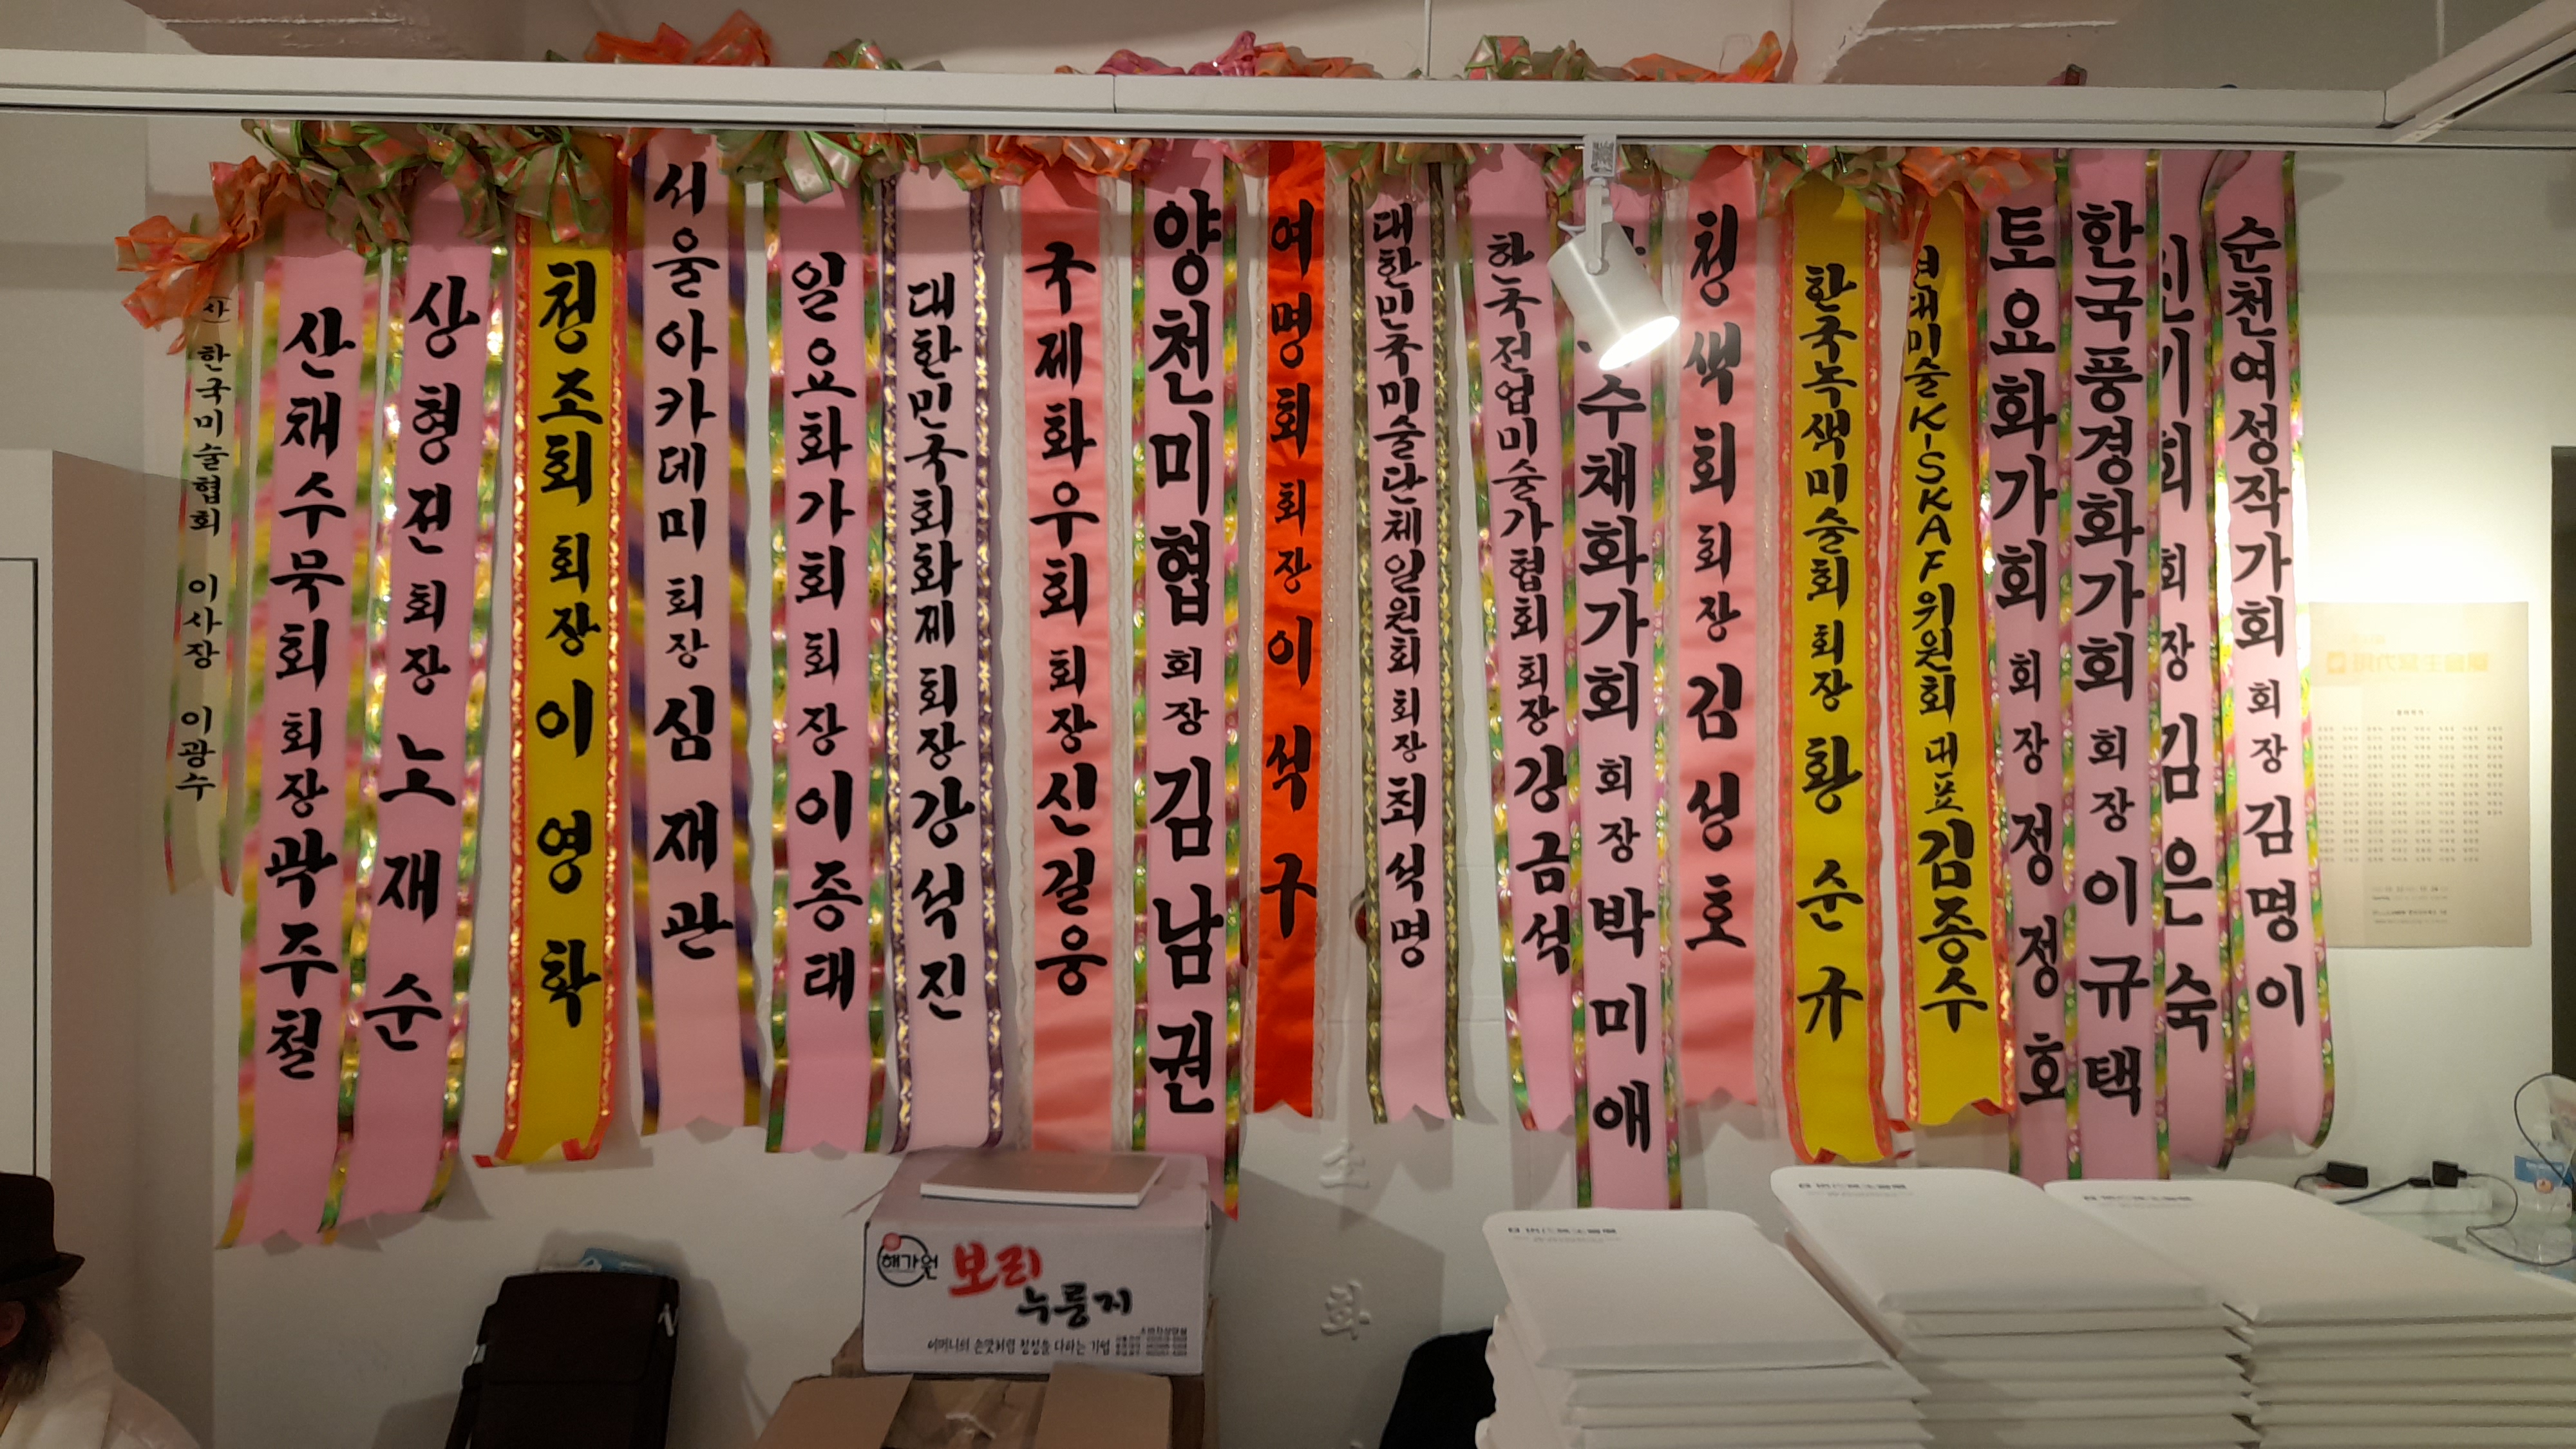 (사)한국미술협회 이사장 이광수
산채수묵회 회장 곽주철
상형전 회장 노재순
청조회 회장 이영학
서울아카데미 회장 심재관
일요화가회 회장 이종태
대한민국회화제 회장 강석진
국제화우회 회장 신길웅
양천미협 회장 김남권
여명회 회장 이석구
대한민국미술단체일원회 회장 최석명
한국전업미술가협회 회장 강금석
수채화가회 회장 박미애
청색회 회장 김성호
한국녹색미술회 회장 황순규
대미술K-SKAF위원회 대표 김종수
토요화가회 회장 정정호
한국풍경화가회 회장 이규택
회 회장 김은숙
순천여성작가회 회장 김명이
해가원
보리
누룽지
어머니의 손맛처럼 정성을 다하는 기업
소
화